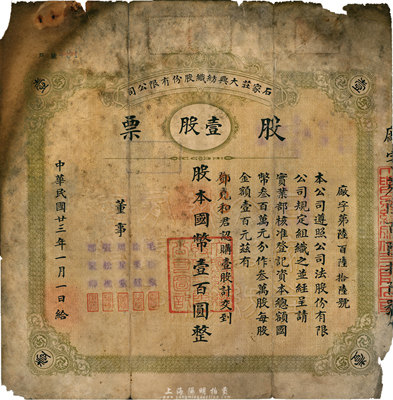 石家莊大興紡織股份有限公司
股票
壹股
廠字第陸百陸拾陸號
本公司遵照公司法股份有限
公司規定組織之並經呈請
實業部核准登記資本總額國
幣叁百萬元分作叁萬股每股
金額壹百元茲有
君認購壹股計交到
股本國幣壹百圓整
董事
中華民國廿三年一月一日給
壹
壹
壹
壹
上海陽明拍賣